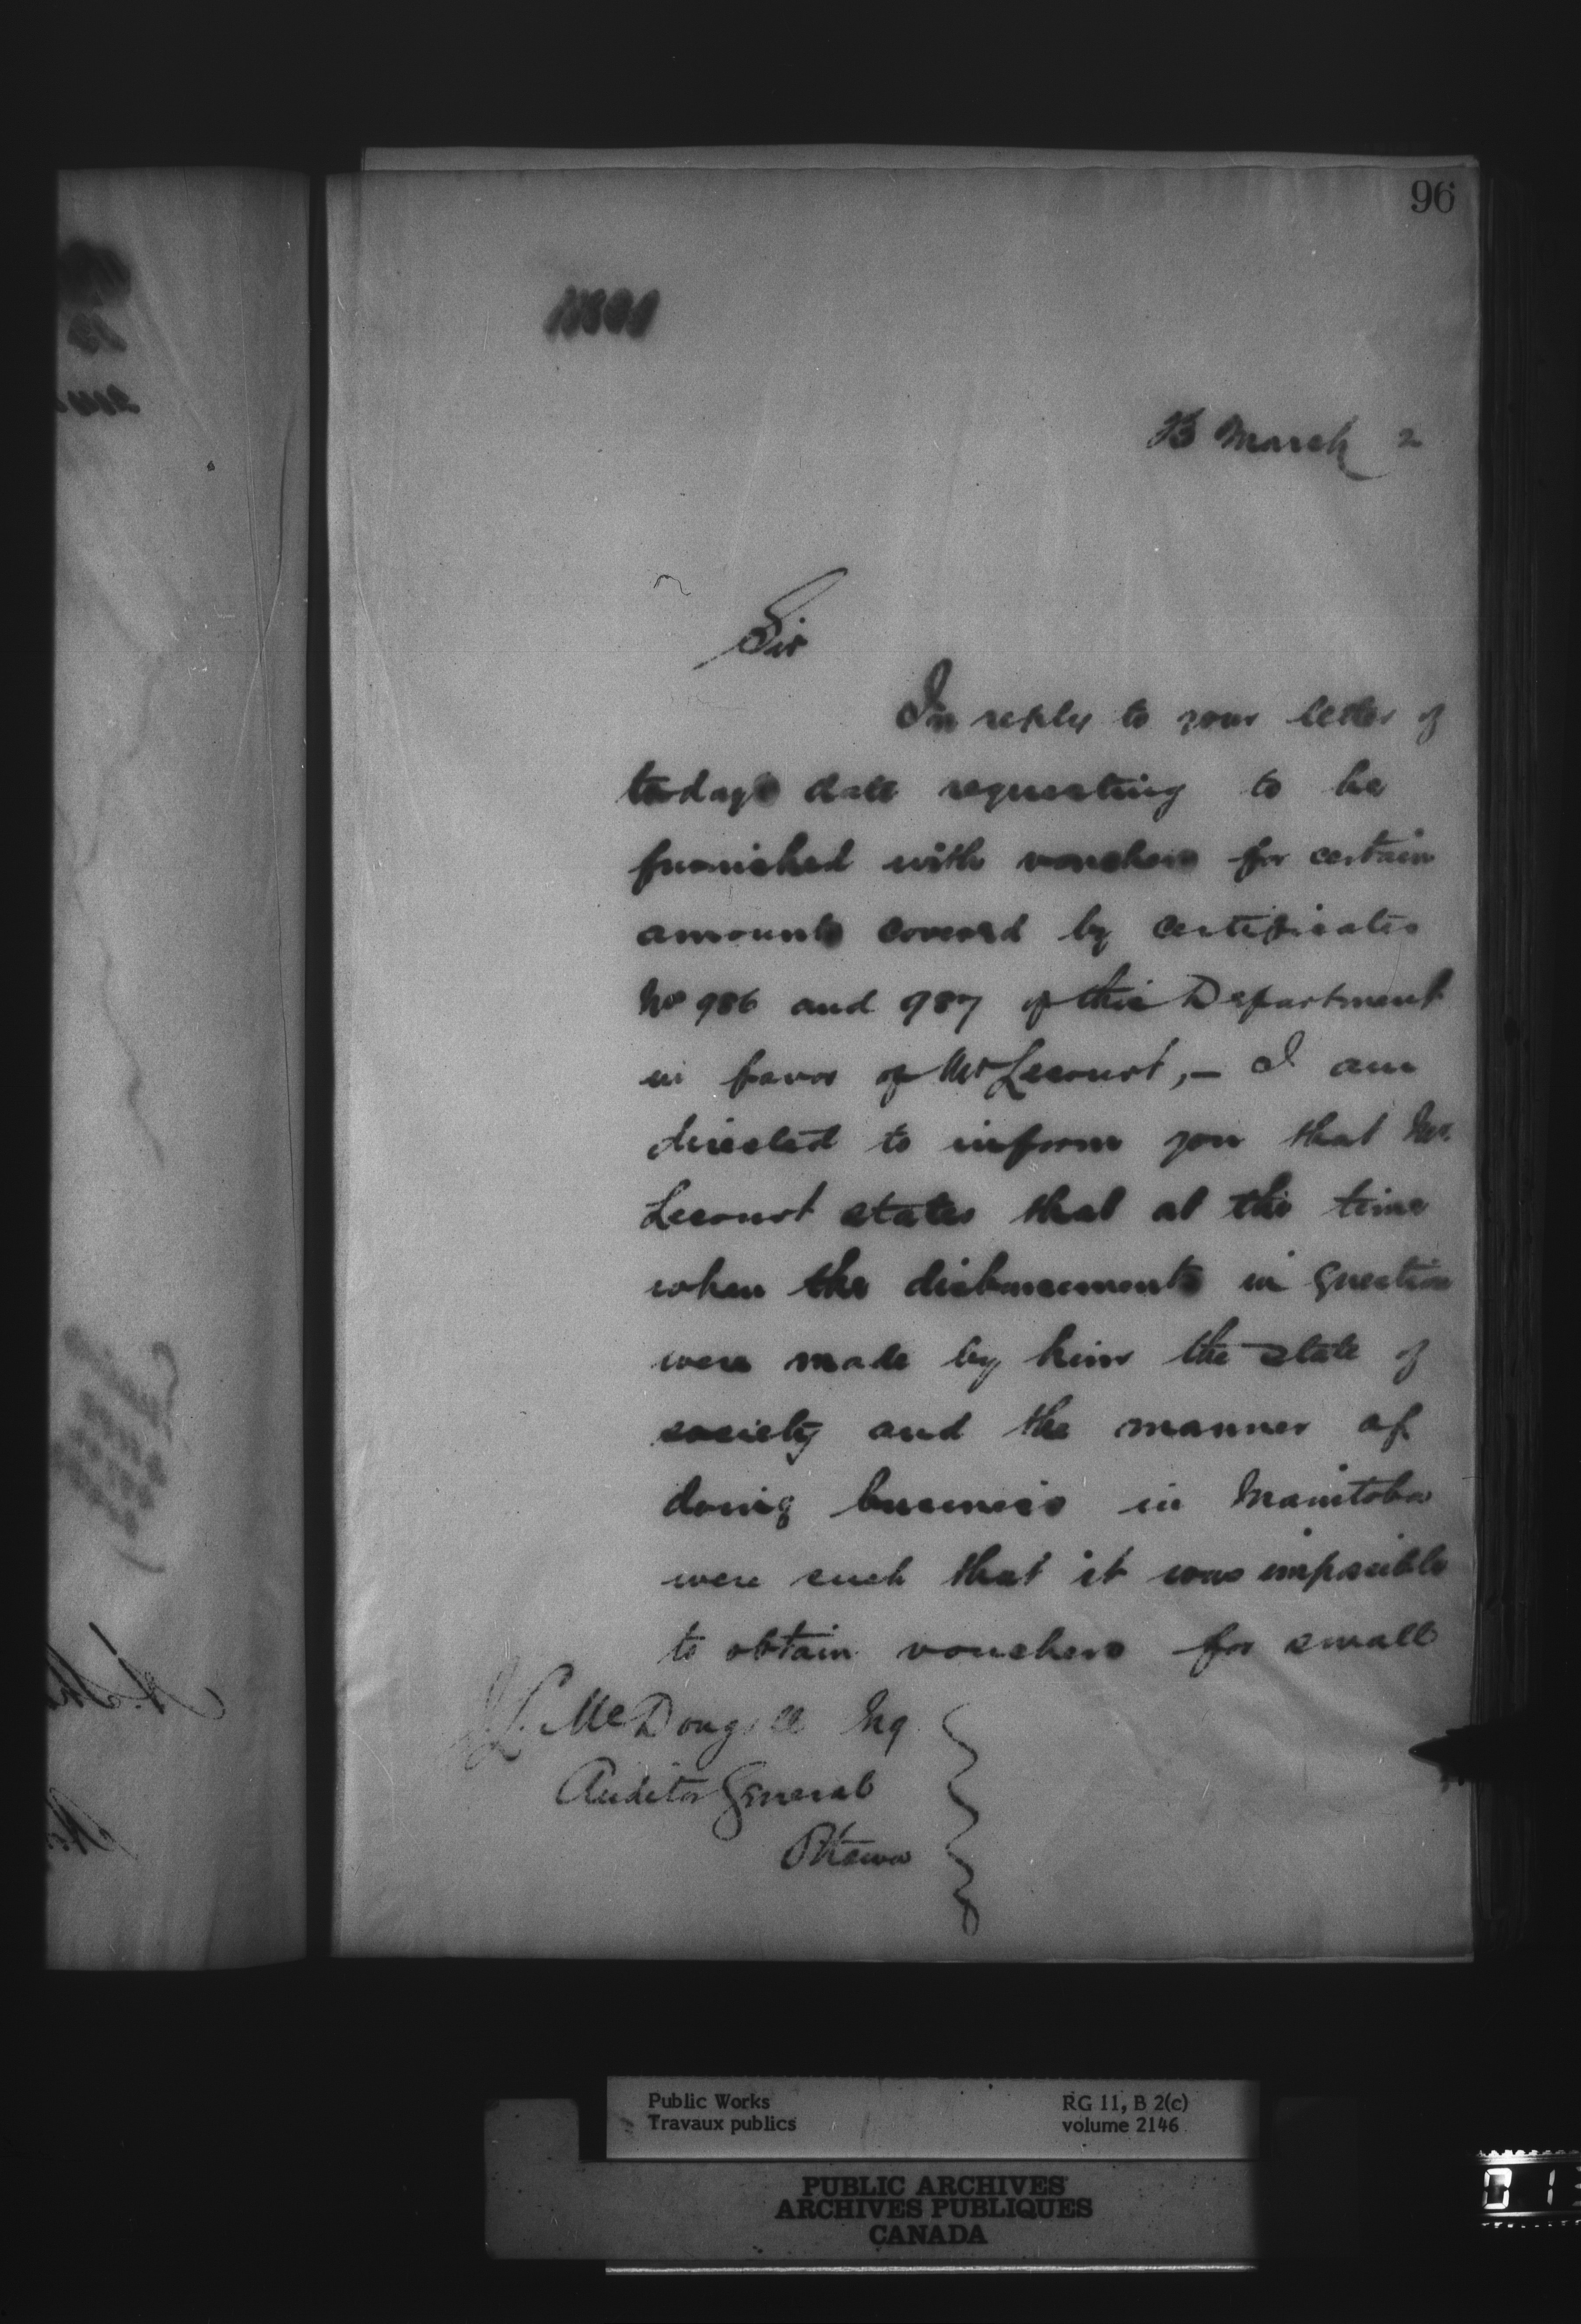 96
13 March 2
Sir
In reply to your letter of
todays date requesting to be
furnished with vouchers for certain
amounts covered by certificates
Nos 986 and 987 of this Department
in favor of Mr Lecourt, — I am
directed to inform you that Mr.
Lecourt states that at the time
when the disbursements in question
were made by him the state of
society and the manner of
doing business in Manitoba
were such that it was impossible
to obtain vouchers for small
J. L. McDougall Esq
Auditor General
Ottawa
Public Works
Travaux publics
RG 11, B 2(c)
volume 2146
PUBLIC ARCHIVES
ARCHIVES PUBLIQUES
CANADA